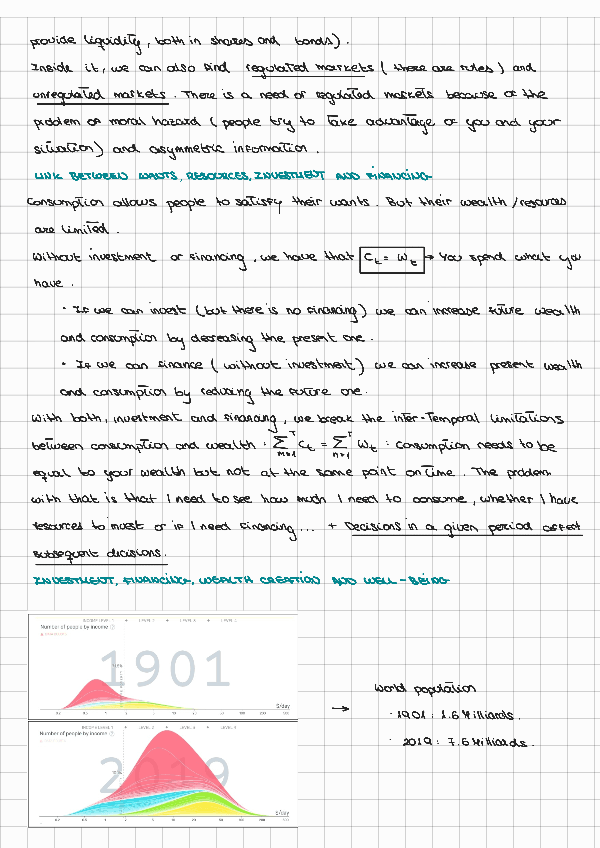 provide liquidity, both in shares and bonds).
Inside it, we can also find regulated markets (there are rules) and
unregulated markets. There is a need of regulated markets because of the
problem of moral hazard (people try to take advantage of you and your
situation) and asymmetric information.
LINK BETWEEN WANTS, RESOURCES, INVESTMENT AND FINANCING
Consumption allows people to satisfy their wants. But their wealth/resources
are limited.
Without investment or financing, we have that Ct = Wt → You spend what you
have.
· If we can invest (but there is no financing) we can increase future wealth
and consumption by decreasing the present one.
· If we can finance (without investment) we can increase present wealth
and consumption by reducing the future one.
With both, investment and financing, we break the inter-temporal limitations
between consumption and wealth: ∑ Ct = ∑ Wt : consumption needs to be
equal to your wealth but not at the same point on time. The problem
with that is that I need to see how much I need to consume, whether I have
resources to invest or if I need financing... + Decisions in a given period affect
subsequent decisions.
INVESTMENT, FINANCING, WEALTH CREATION AND WELL-BEING
Number of people by income
1901
$/day
World population
· 1901: 1.6 Milliards.
· 2019: 7.6 Milliards.
Number of people by income
2019
$/day